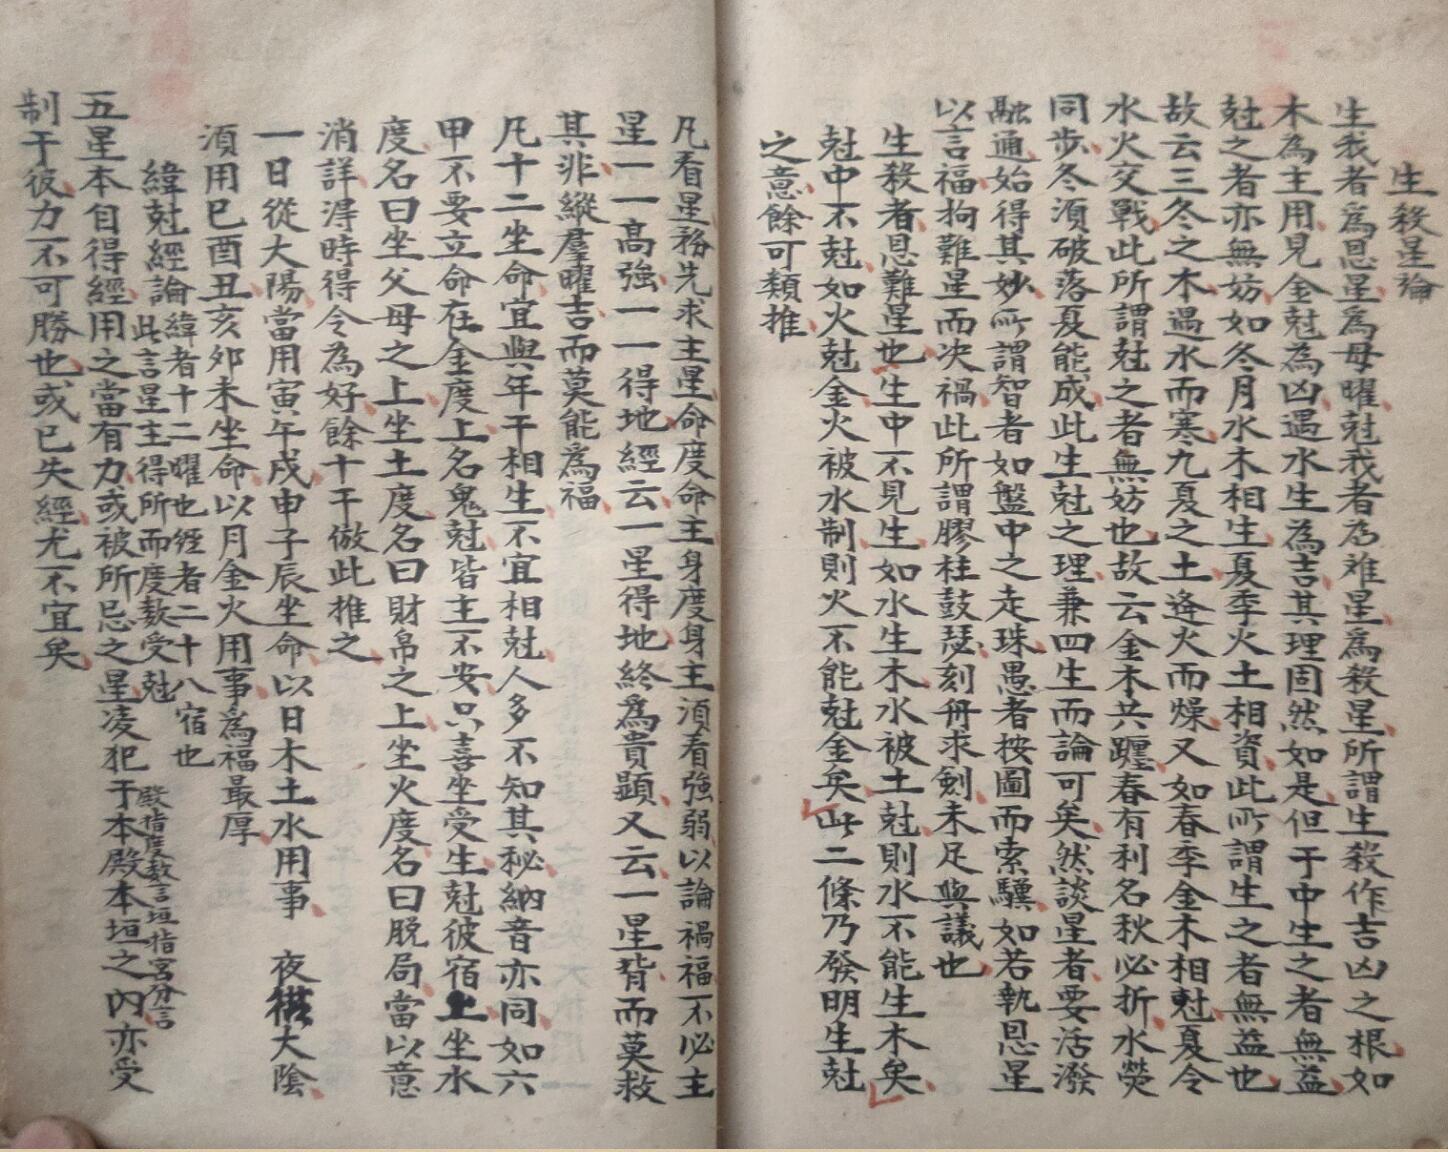 生殺星論
生我者為恩星為母曜尅我者乃难星為殺星所謂生殺作吉凶之根如
木為主用見金尅為凶遇水生為吉其理固然如是但于中生之者無益
尅之者亦無妨如冬月水木相生夏季火土相資此所謂生之者無益也
故云三冬之木遇水而寒九夏之土逢火而燥又如春季金木相尅夏令
水火交戰此所謂尅之者無妨也故云金木共躔春有利名秋必折水熒
同步冬須破落夏能成此生尅之理兼四生而論可矣然談星者要活潑
融通始得其妙所謂智者如盤中之走珠愚者按圖而索驥如若執恩星
以言福拘難星而决禍此所謂膠柱鼓瑟刻舟求劍未足與議也
生殺者恩難星也生中不見生如水生木水被土尅則水不能生木矣
尅中不尅如火尅金火被水制則火不能尅金矣此二條乃發明生尅
之意餘可類推
凡看星務先求主星命度命主身度身主須看強弱以論禍福不必主
星一一高強一一得地經云一星得地終為貴顯又云一星背而莫救
其非縱羣曜吉而莫能為福
凡十二坐命宜與年干相生不宜相尅人多不知其秘納音亦同如六
甲不要立命在金度上名鬼尅皆主不安只喜坐受生尅彼宿上坐水
度名曰坐父母之上坐土度名曰財帛之上坐火度名曰脱局當以意
消詳淂時得令為好餘十干倣此推之
一日從大陽當用寅午戍申子辰坐命以日木土水用事 夜從大陰
須用巳酉丑亥夘未坐命以月金火用事為福最厚
緯尅經論緯者十二曜也經者二十八宿也
此言星主得所而度数受尅
殿指度数言垣指宮分言
五星本自得經用之當有力或被所忌之星凌犯于本殿本垣之内亦受
制于彼力不可勝也或已失經尤不宜矣